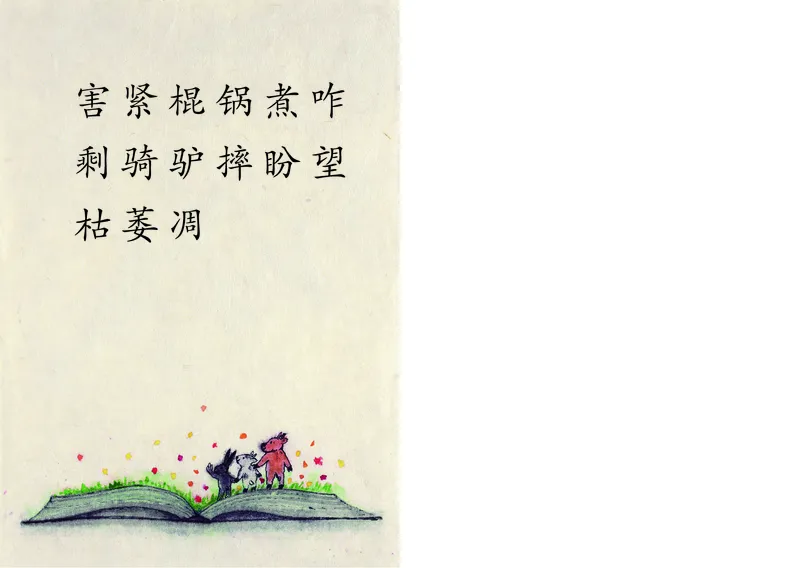 害紧棍锅煮咋
剩骑驴摔盼望
枯萎凋